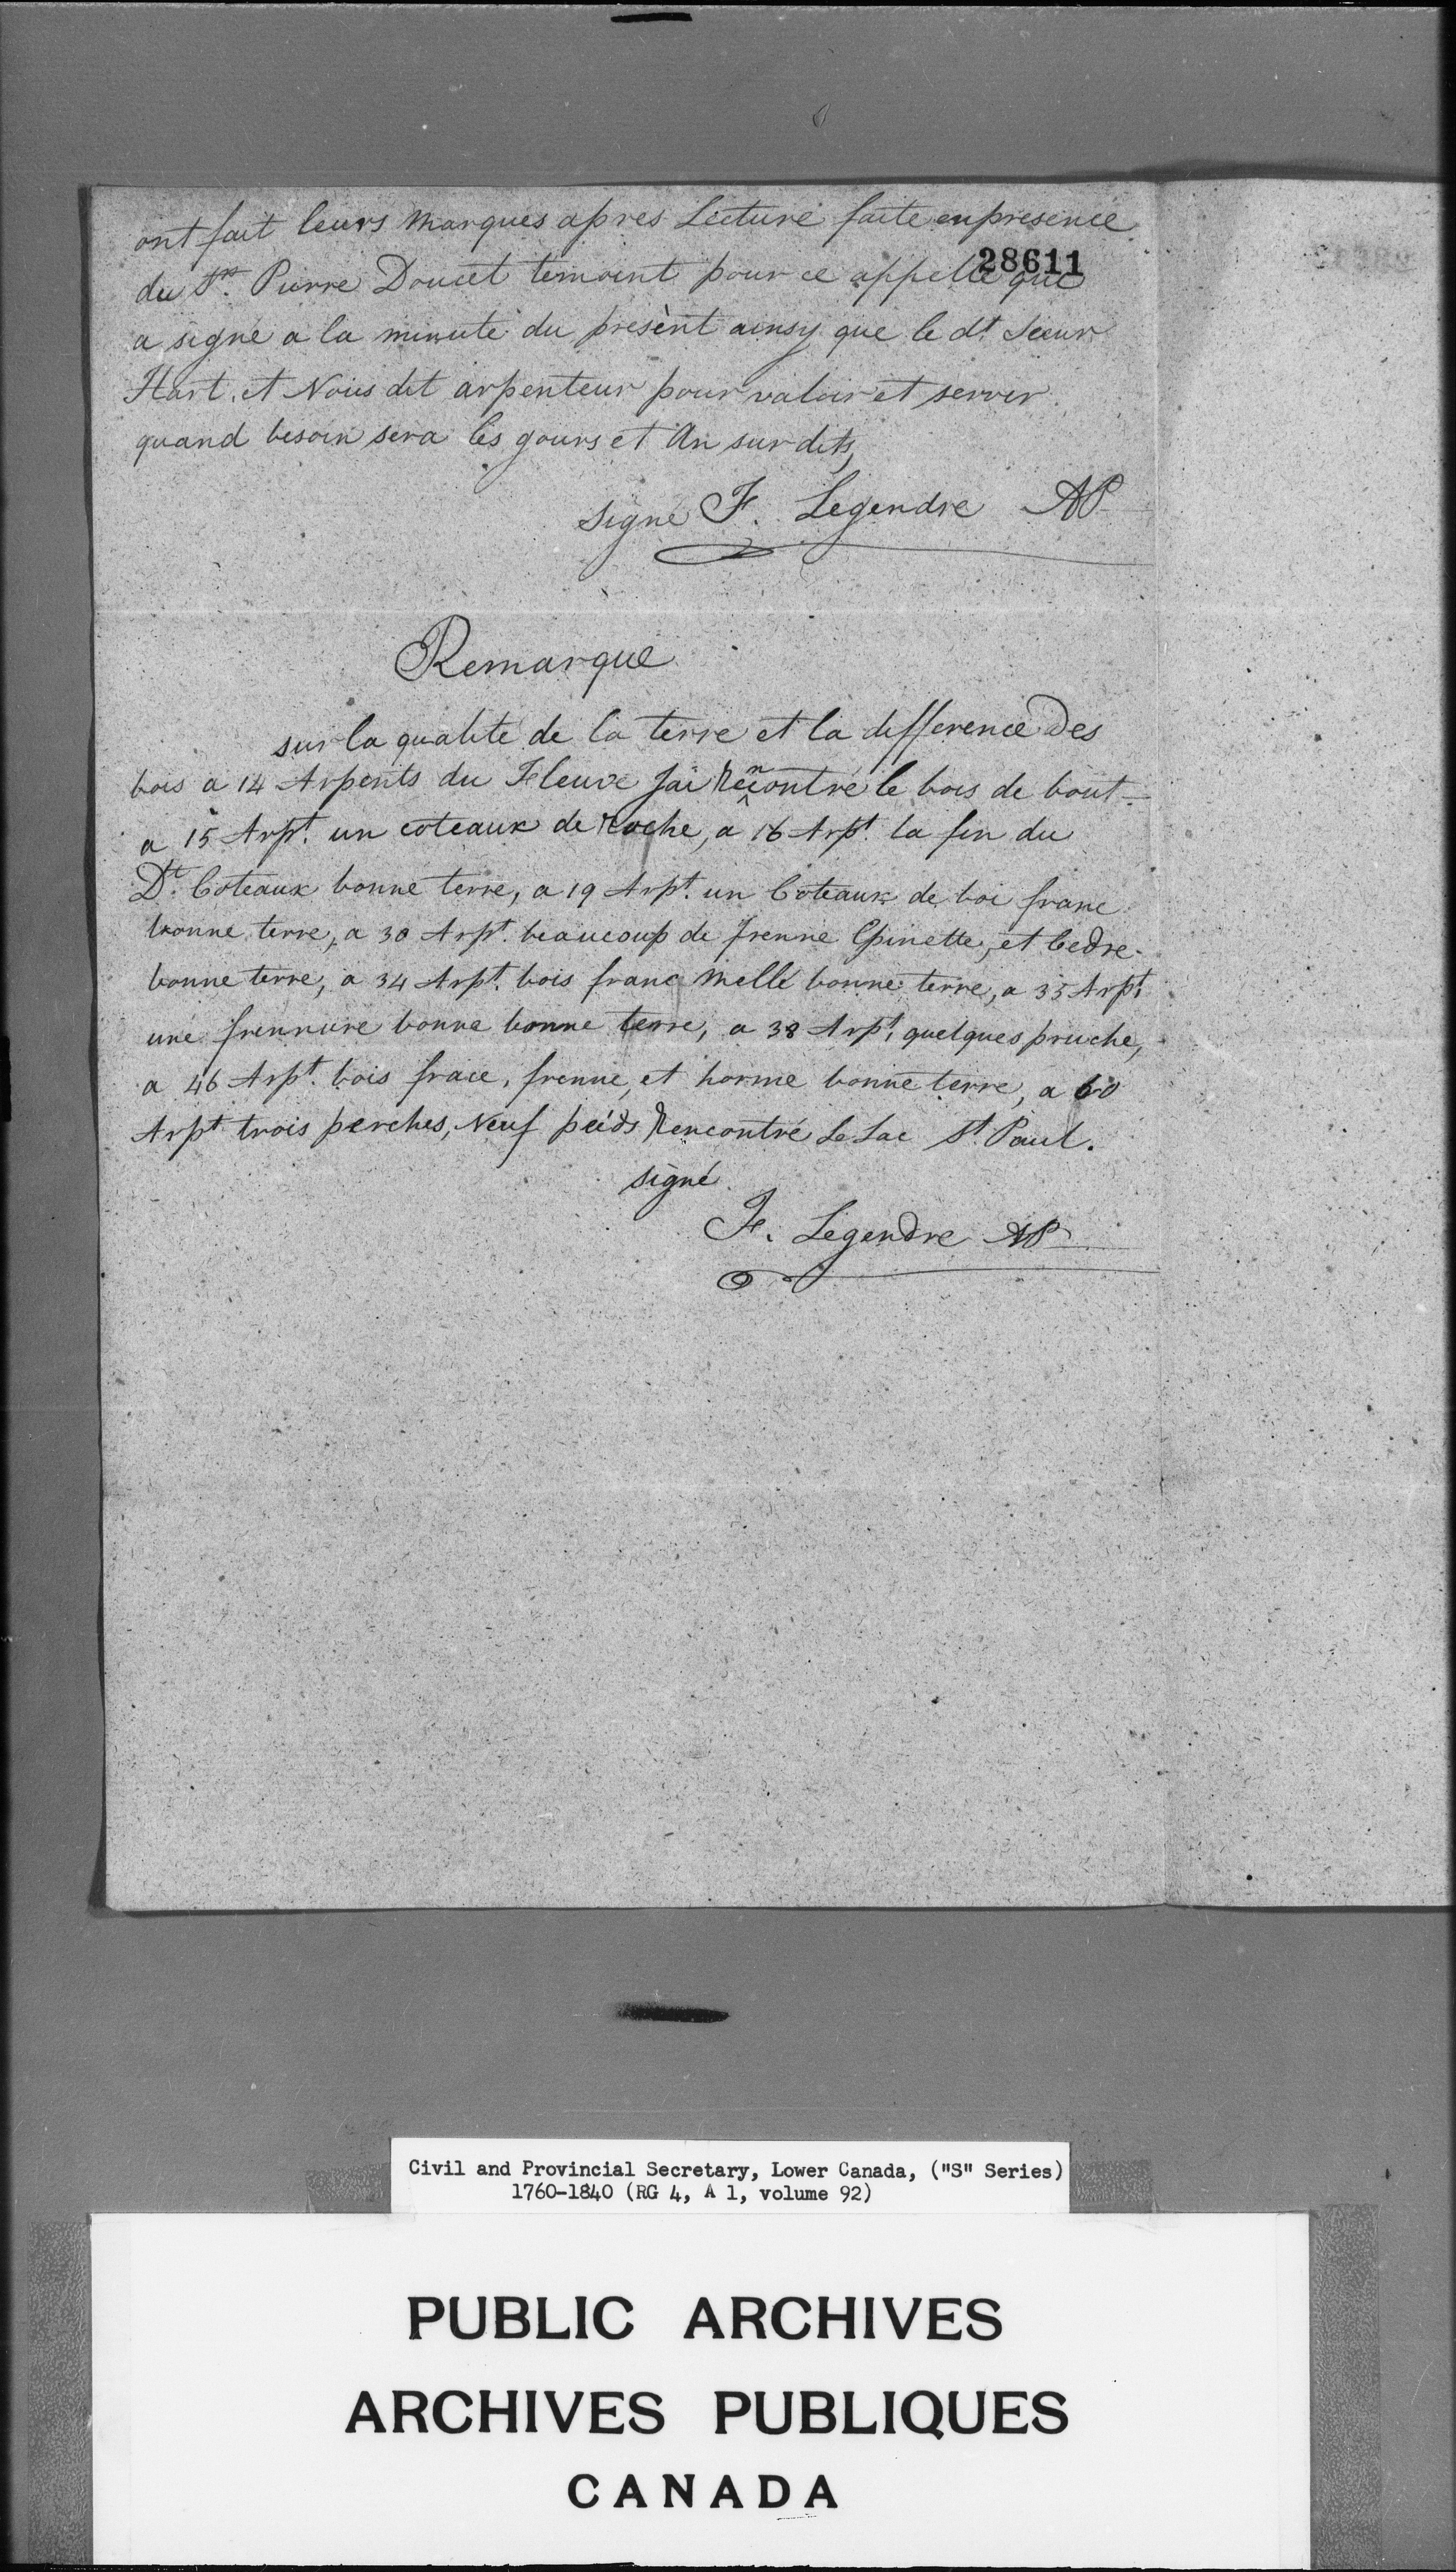 ont fait leurs Marques apres Lecture faite en presence
28611
du Sr. Pierre Doucet temoint pour ce appellé qui
a signé a la minute du present ainsy que le dt. Sieur
Hart, et Nous dit arpenteur pour valoir et servir
quand besoin sera les jours et An sur dits,
signé F. Legendre AP
Remarque
sur la qualité de la terre et la difference Des
bois a 14 Arpents du Fleuve Jai Rencontré le bois de bout -
a 15 Arpt. un coteaux de Roche, a 16 Arpt. la fin du
Dt. Coteaux bonne terre, a 19 Arpt. un Coteaux de boi franc
bonne terre, a 30 Arpt. beaucoup de frenne Epinette, et Cedre -
bonne terre, a 34 Arpt. bois franc Mellé bonne terre, a 35 Arpt.
une frennure bonne bonne terre, a 38 Arpt. quelques pruche,
a 46 Arpt. bois frace, frenne, et horme bonne terre, a 60
Arpt. trois perches, Neuf peids Rencontré Le Lac St. Paul.
signé
F. Legendre AP
Civil and Provincial Secretary, Lower Canada, ("S" Series)
1760-1840 (RG 4, A 1, volume 92)
PUBLIC ARCHIVES
ARCHIVES PUBLIQUES
CANADA